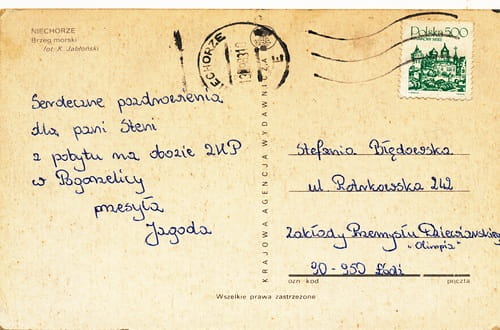 NIECHORZE
Brzeg morski
fot. K. Jabłoński
NIECHORZE
Polska 500
Serdeczne pozdrowienia
dla pani Steni
z pobytu na obozie ZHP
w Pogorzelicy
przesyła
Jagoda
KRAJOWA AGENCJA WYDAWNICZA
Stefania Błędowska
ul. 242
Zakłady Przemysłu Dziewiarskiego
„Olimpia”
90-950 Łódź
ozn kod poczta
Wszelkie prawa zastrzeżone